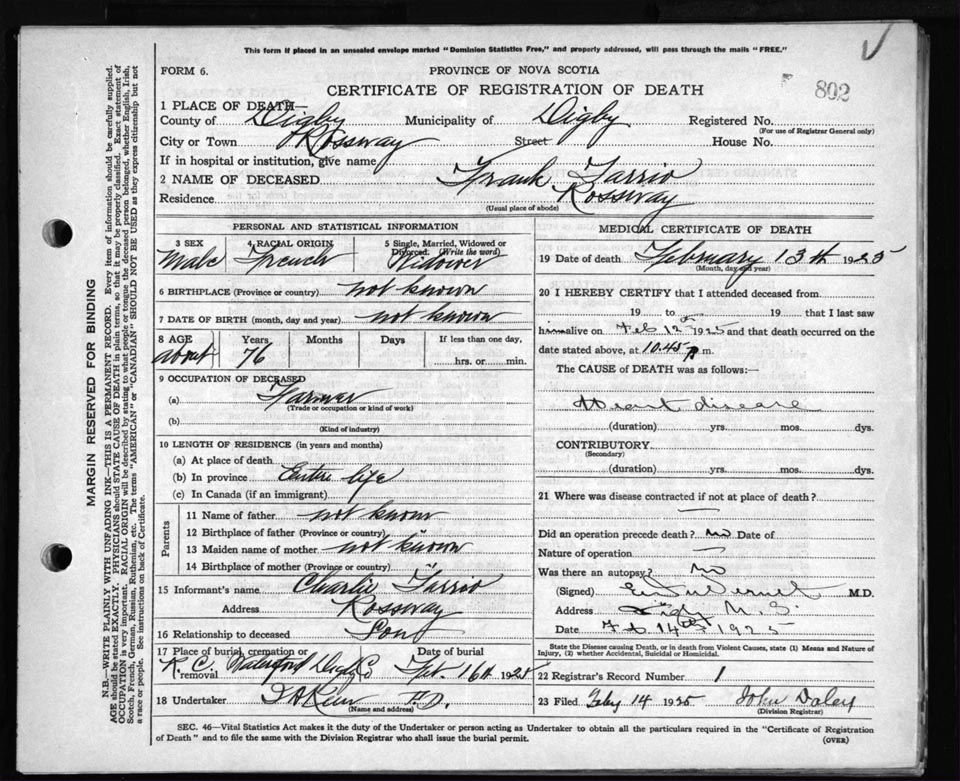 This form if placed in an unsealed envelope marked "Dominion Statistics Free," and properly addressed, will pass through the mails "FREE."
FORM 6.
PROVINCE OF NOVA SCOTIA
802
CERTIFICATE OF REGISTRATION OF DEATH
1 PLACE OF DEATH—
County of Digby Municipality of Digby Registered No.
(For use of Registrar General only)
City or Town Rossway Street House No.
If in hospital or institution, give name
2 NAME OF DECEASED Frank Tarrio
Residence Rossway
(Usual place of abode)
PERSONAL AND STATISTICAL INFORMATION
3 SEX 4 RACIAL ORIGIN 5 Single, Married, Widowed or Divorced. (Write the word)
Male French Widower
6 BIRTHPLACE (Province or country) not known
7 DATE OF BIRTH (month, day and year) not known
8 AGE Years Months Days If less than one day,
about 76 hrs. or min.
9 OCCUPATION OF DECEASED
(a) Farmer
(Trade or occupation or kind of work)
(b)
(Kind of industry)
10 LENGTH OF RESIDENCE (in years and months)
(a) At place of death
(b) In province Entire life
(c) In Canada (if an immigrant)
Parents
11 Name of father not known
12 Birthplace of father (Province or country)
13 Maiden name of mother not known
14 Birthplace of mother (Province or country)
15 Informant's name Charlie Tarrio
Address Rossway
16 Relationship to deceased Son
17 Place of burial, cremation or removal Date of burial
R.C. Waterford Digby Co Feb. 16th 1925
18 Undertaker
(Name and address)
MEDICAL CERTIFICATE OF DEATH
19 Date of death February 13th 1925
(Month, day and year)
20 I HEREBY CERTIFY that I attended deceased from
19 to 19 that I last saw
him alive on Feb 12 1925 and that death occurred on
date stated above, at 10.45 P m.
The CAUSE of DEATH was as follows:—
Heart disease
(duration) yrs. mos. dys.
CONTRIBUTORY
(Secondary)
(duration) yrs. mos. dys.
21 Where was disease contracted if not at place of death?
—
Did an operation precede death? no Date of
Nature of operation —
Was there an autopsy? no
(Signed) M.D.
Address Digby N.S.
Date Feb 14th 1925
State the Disease causing Death, or in death from Violent Causes, state (1) Means and Nature of Injury, (2) whether Accidental, Suicidal or Homicidal.
22 Registrar's Record Number 1
23 Filed Feby 14 1925 John Daley
(Division Registrar)
SEC. 46—Vital Statistics Act makes it the duty of the Undertaker or person acting as Undertaker to obtain all the particulars required in the "Certificate of Registration
of Death" and to file the same with the Division Registrar who shall issue the burial permit.
(OVER)
MARGIN RESERVED FOR BINDING
N.B.—WRITE PLAINLY WITH UNFADING INK—THIS IS A PERMANENT RECORD. Every item of information should be carefully supplied.
AGE should be stated EXACTLY. PHYSICIANS should STATE CAUSE OF DEATH in plain terms, so that it may be properly classified. Exact statement of
OCCUPATION is very important. RACIAL ORIGIN will be described by stating to what people or tongue the deceased person belonged, whether English, Irish,
Scotch, French, German, Russian, Ruthenian, etc. The terms "AMERICAN" or "CANADIAN" SHOULD NOT BE USED as they express citizenship but not
a race or people. See instructions on back of Certificate.